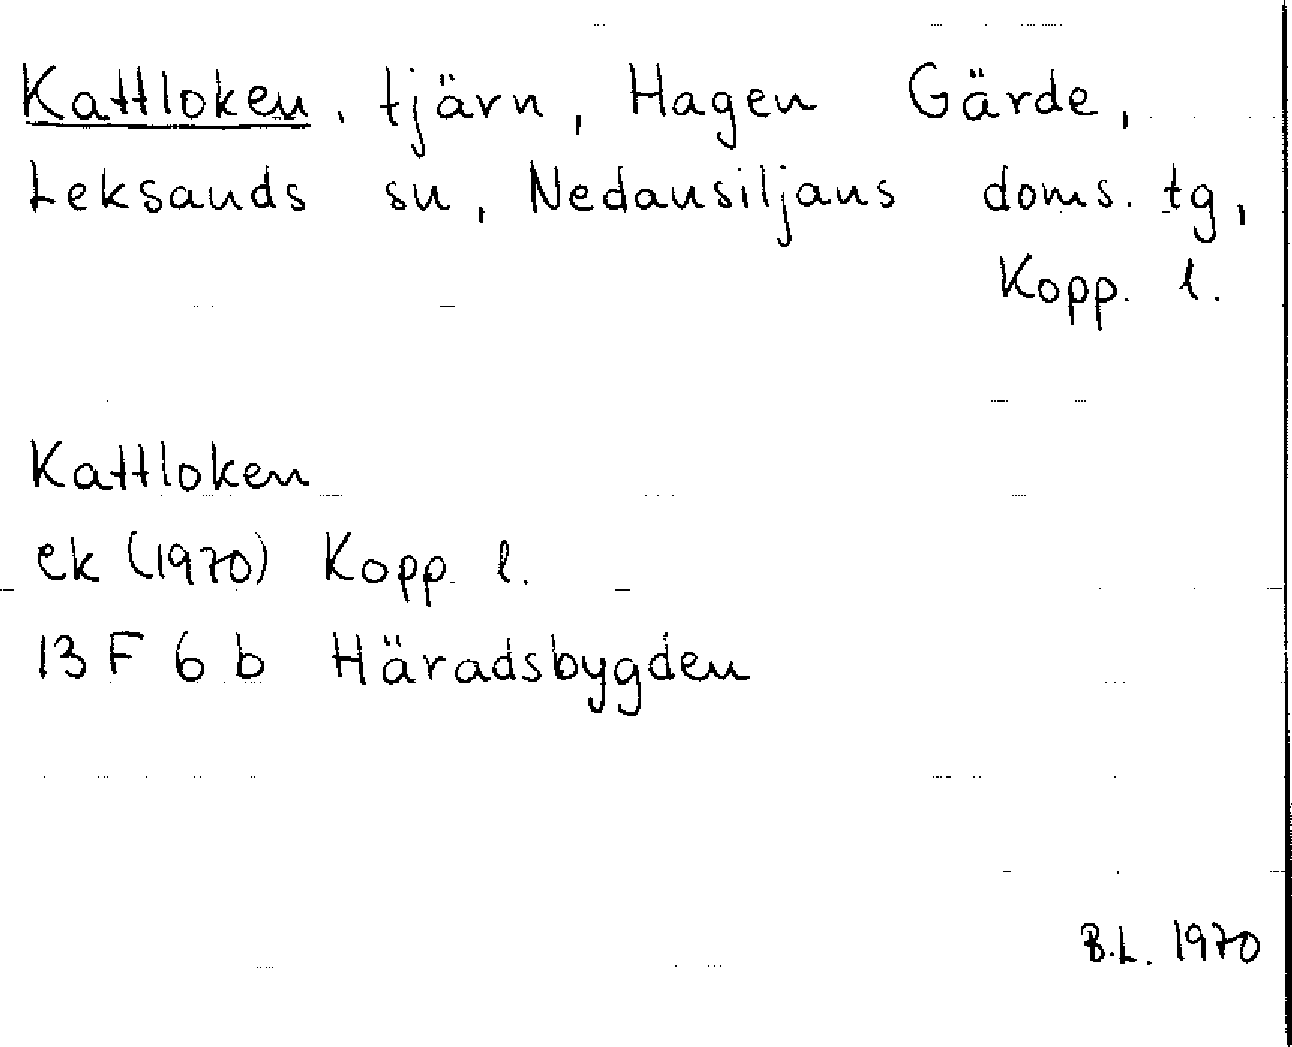 Kattloken, tjärn, Hagen Gärde,
Leksands sn, Nedansiljans doms. tg,
Kopp. l.
Kattloken
ek (1970) Kopp. l.
13 F 6 b Häradsbygden
B.L. 1970